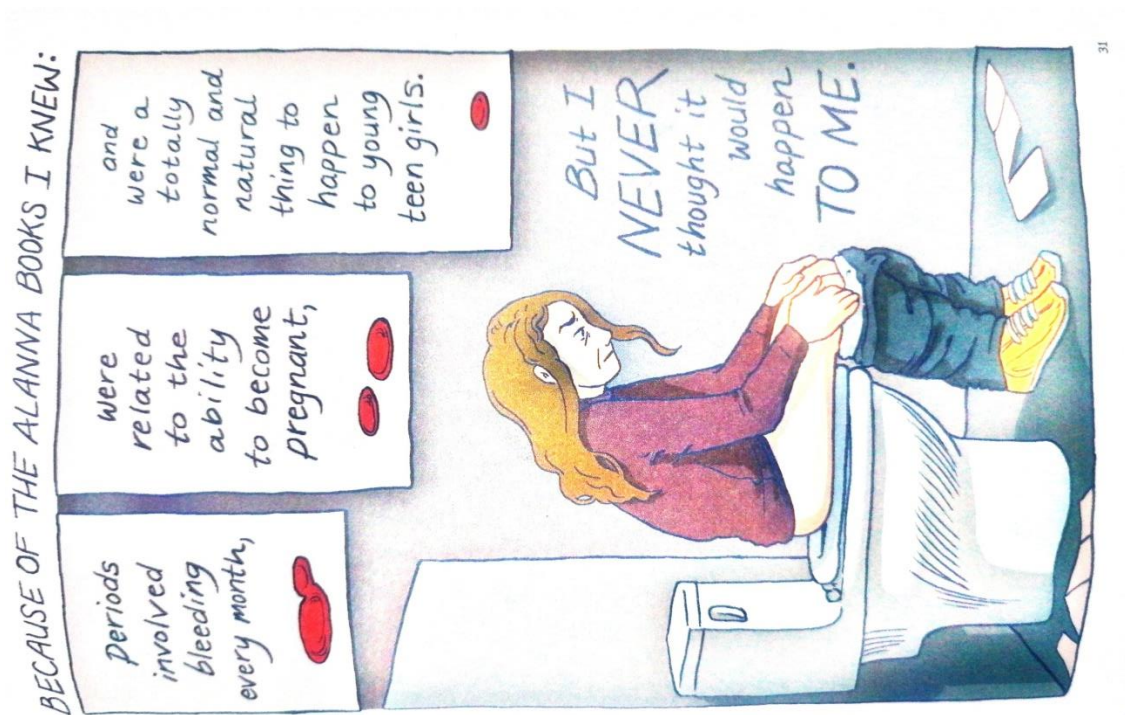 BECAUSE OF THE ALANNA BOOKS I KNEW:
Periods
involved
bleeding
every month,
were
related
to the
ability
to become
pregnant,
and
were a
totally
normal and
natural
thing to
happen
to young
teen girls.
But I
NEVER
thought it
would
happen
TO ME.
31